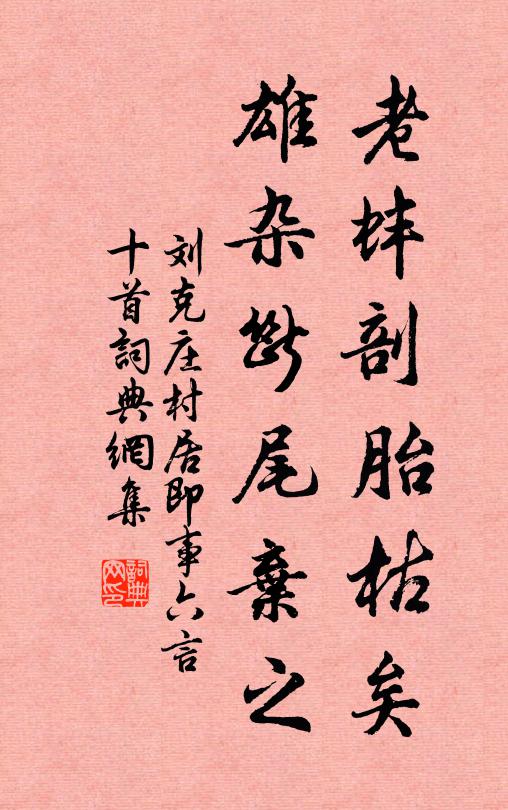 老蚌剖胎枯矣
雄杂断尾弃之
刘克庄村居即事六言
十首詞典網集
詞典網印